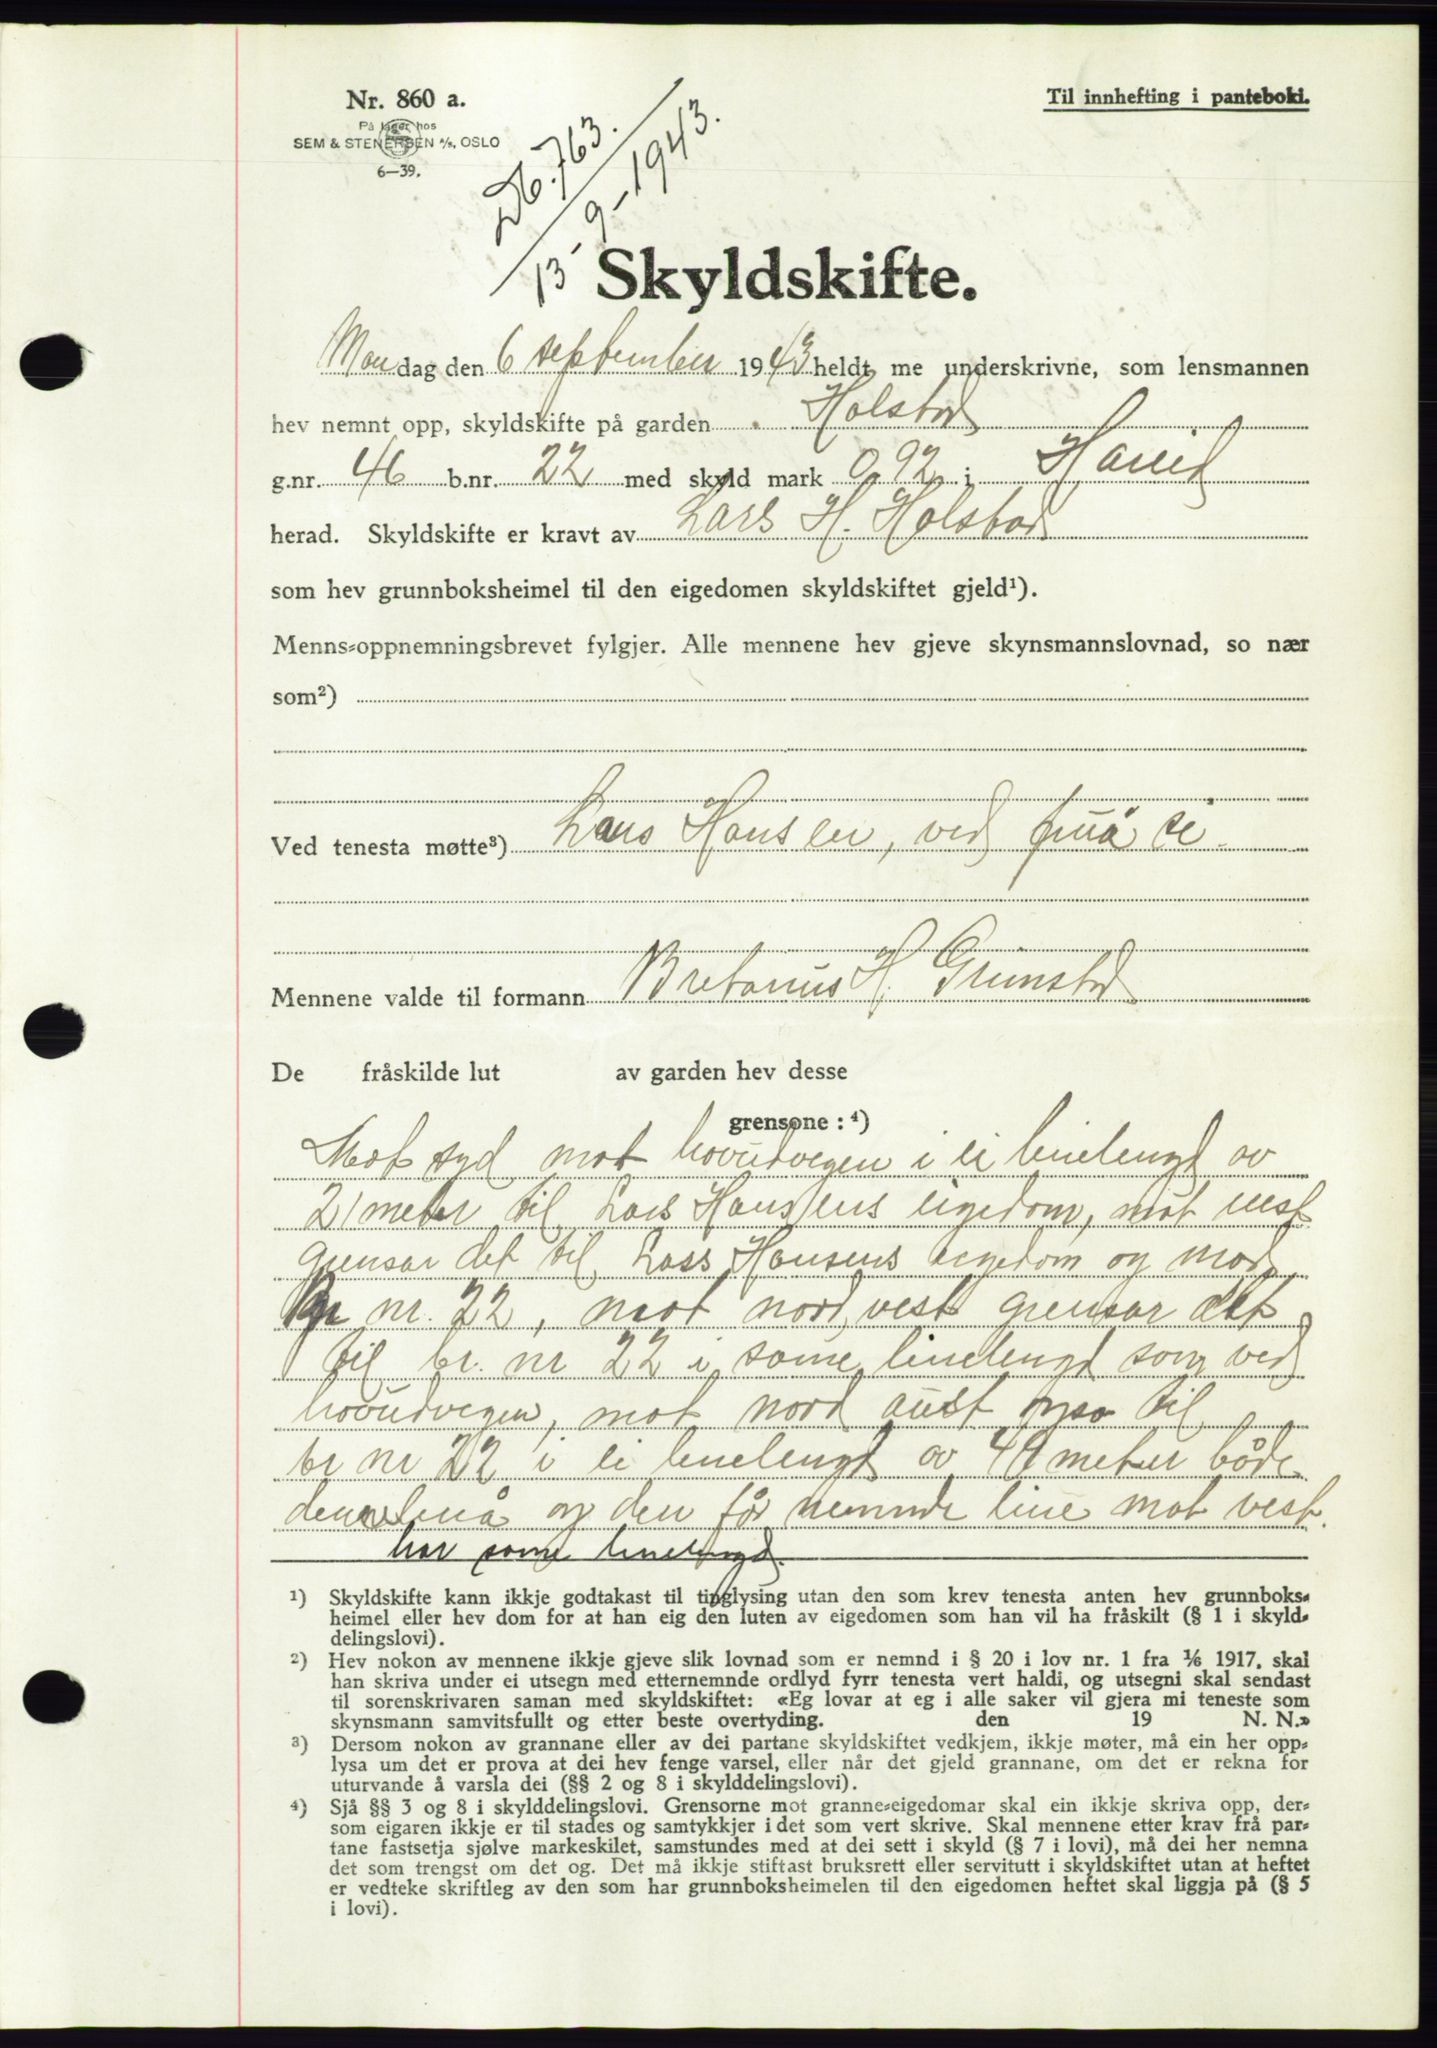 Nr. 860 a.
På lager hos
SEM & STENERSEN A/S, OSLO
6—39.
Til innhefting i panteboki.
Db. 763.
13 - 9 - 1943.
Skyldskifte.
Mandag den 6 september 1943 heldt me underskrivne, som lensmannen
hev nemnt opp, skyldskifte på garden Holstad
g.nr. 46 b.nr. 22 med skyld mark 0 92 i Hareid
herad. Skyldskifte er kravt av Lars H. Holstad
som hev grunnboksheimel til den eigedomen skyldskiftet gjeld¹).
Menns-oppnemningsbrevet fylgjer. Alle mennene hev gjeve skynsmannslovnad, so nær
som²)
Ved tenesta møtte³) Lars Hansen, ved
Mennene valde til formann Bretanus H. Grimstad
De fråskilde lut av garden hev desse
grensone : ⁴)
Mot syd mot hovudvegen i ei linelengd av
21 meter til Lars Hansens eigedom, mot vest
grensar det til Lars Hansens eigedom og mod
Br nr. 22, mot nord, vest grensar det
til br. nr 22 i same linelengd som ved
hovudvegen, mot nord aust ogso til
br nr 22 i ei linelengd av 49 meter både
denne lina og den før nemnde line mot vest.
har same linelengd.
1) Skyldskifte kann ikkje godtakast til tinglysing utan den som krev tenesta anten hev grunnboks-
heimel eller hev dom for at han eig den luten av eigedomen som han vil ha fråskilt (§ 1 i skyld-
delingslovi).
2) Hev nokon av mennene ikkje gjeve slik lovnad som er nemnd i § 20 i lov nr. 1 fra 1/6 1917, skal
han skriva under ei utsegn med etternemnde ordlyd fyrr tenesta vert haldi, og utsegni skal sendast
til sorenskrivaren saman med skyldskiftet: «Eg lovar at eg i alle saker vil gjera mi teneste som
skynsmann samvitsfullt og etter beste overtyding. den 19 N. N.»
3) Dersom nokon av grannane eller av dei partane skyldskiftet vedkjem, ikkje møter, må ein her opp-
lysa um det er prova at dei hev fenge varsel, eller når det gjeld grannane, om det er rekna for
uturvande å varsla dei (§§ 2 og 8 i skylddelingslovi).
4) Sjå §§ 3 og 8 i skylddelingslovi. Grensorne mot granne-eigedomar skal ein ikkje skriva opp, der-
som eigaren ikkje er til stades og samtykkjer i det som vert skrive. Skal mennene etter krav frå par-
tane fastsetja sjølve markeskilet, samstundes med at dei sett i skyld (§ 7 i lovi), må dei her nemna
det som trengst om det og. Det må ikkje stiftast bruksrett eller servitutt i skyldskiftet utan at heftet
er vedteke skriftleg av den som har grunnboksheimelen til den eigedomen heftet skal liggja på (§ 5
i lovi).